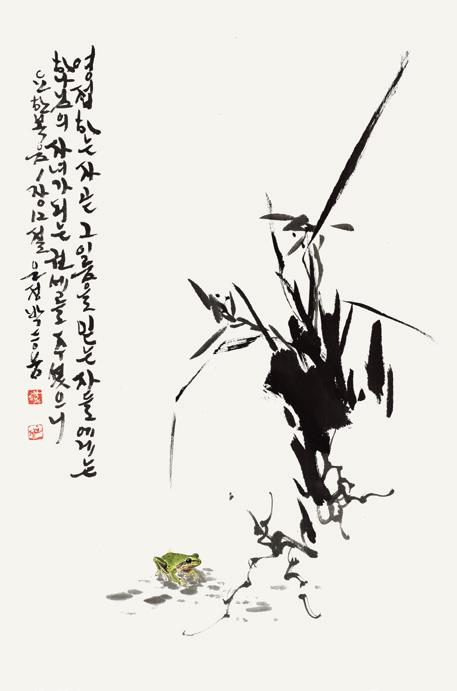 영접하는 자 곧 그 이름을 믿는 자들에게는
하나님의 자녀가 되는 권세를 주셨으니
요한복음 1장 12절